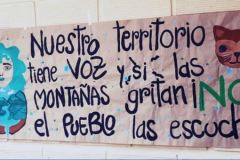 Nuestro territorio
tiene VOZ y si las
MONTAÑAS gritan ¡NO
el PUEBLO las escuch